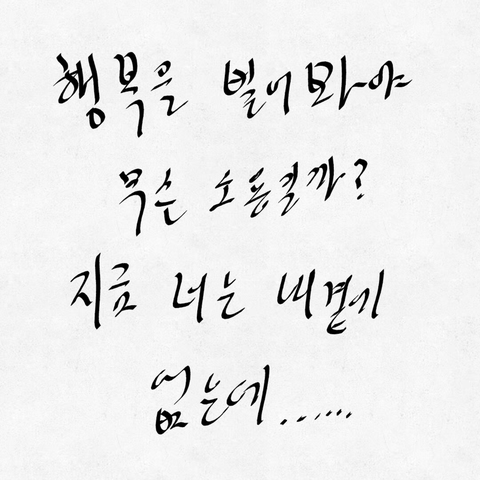 행복을 빌어봐야
무슨 소용일까?
지금 너는 내곁에
없는데......